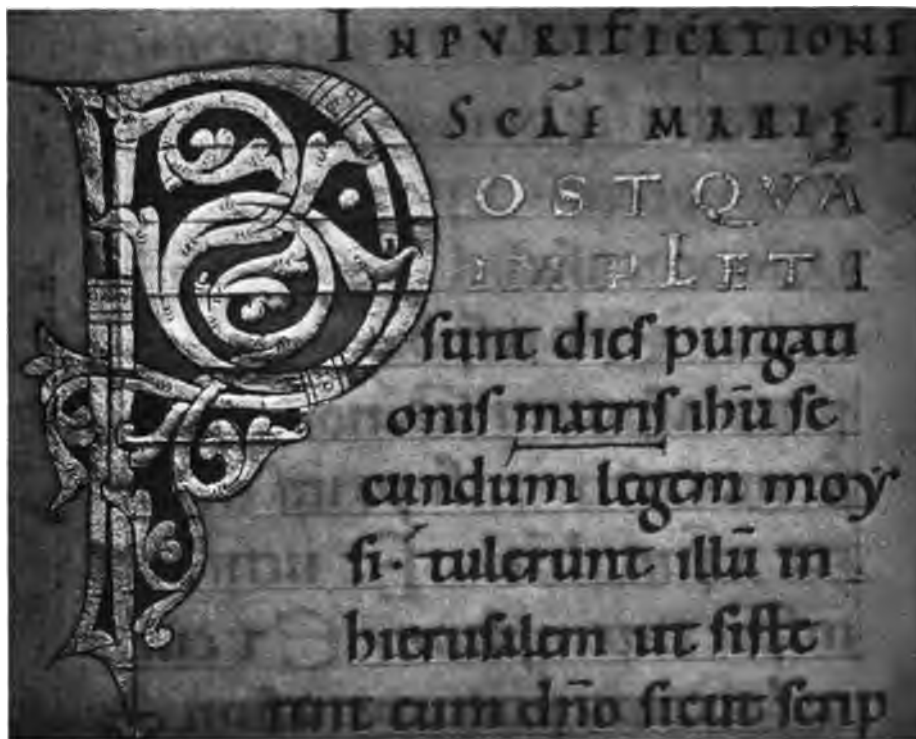 IN PVRIFICATIONE
SCĀE MARIĘ · L
POSTQVĀ
IMPLETI
sunt dies purgati
onis matris ihū se
cundum legem moy
si · tulerunt illū in
hierusalem ut siste
rent cum dn̄o sicut scrip